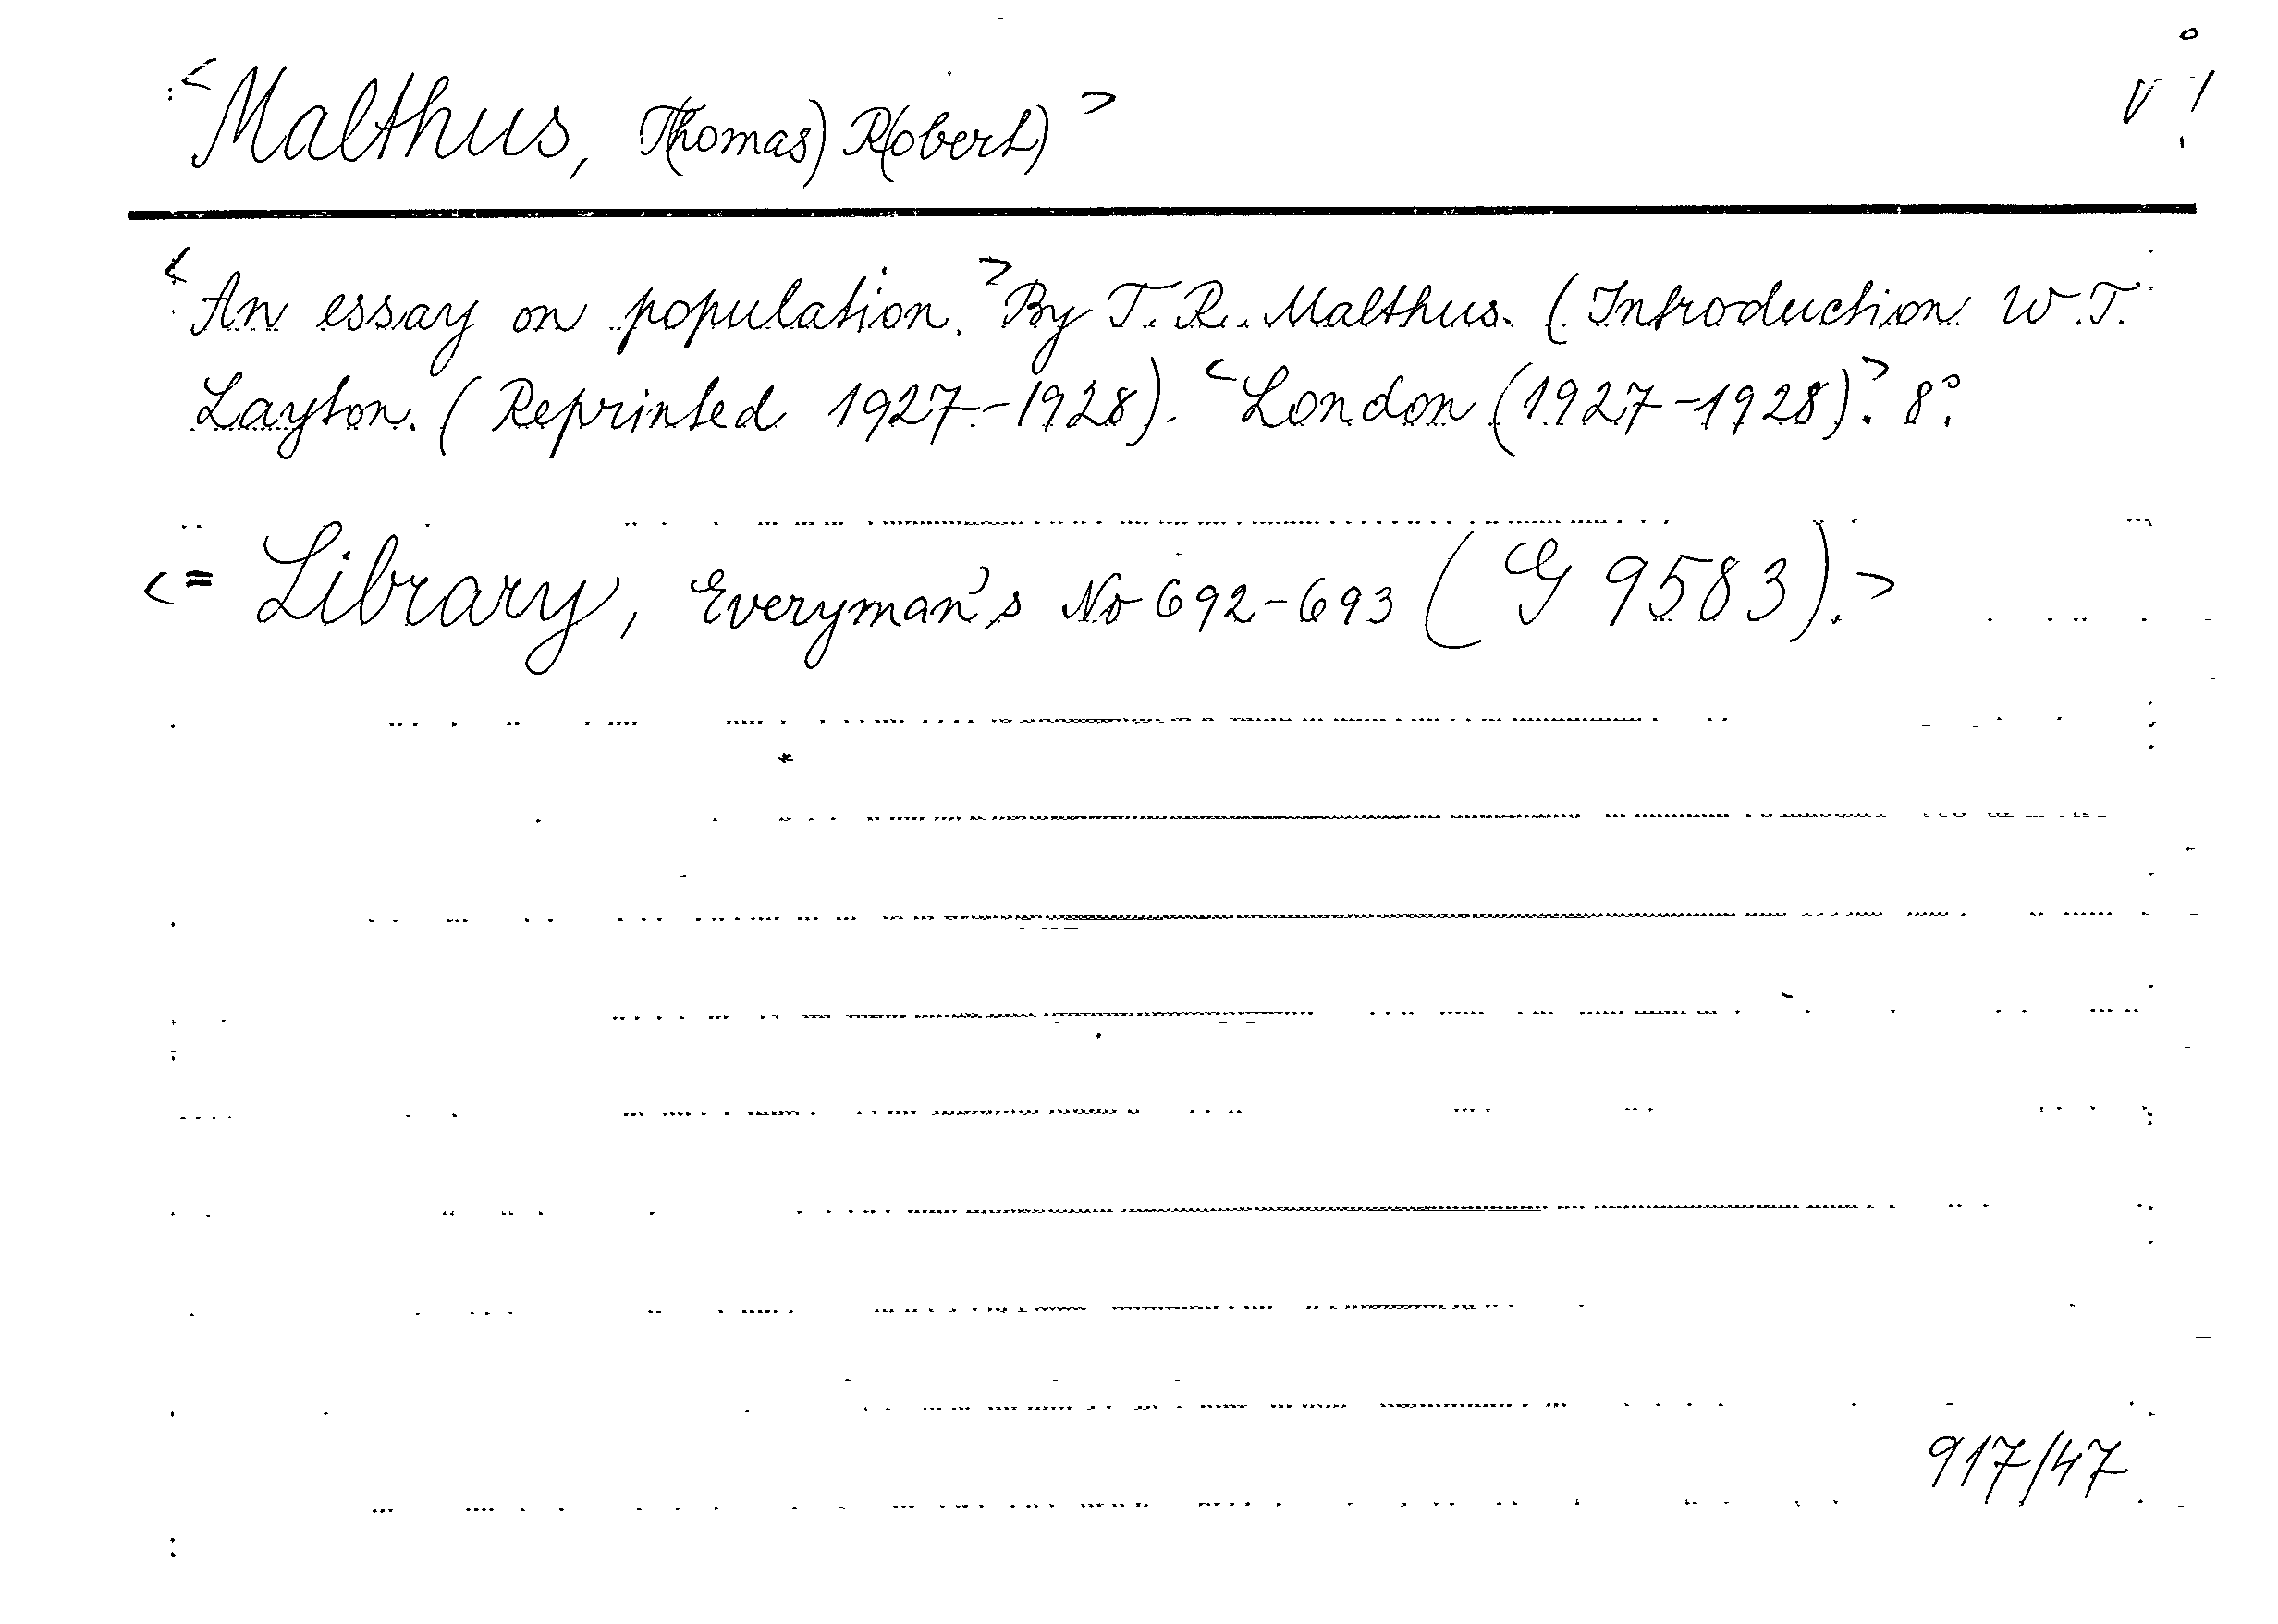 <Malthus, T(homas) R(obert)> V!
<An essay on population.> By T. R. Malthus. (Introduction W. T.
Layton. (Reprinted 1927-1928). <London (1927-1928).> 8°.
<= Library, Everyman's No 692-693 (G 9583).>
917/47